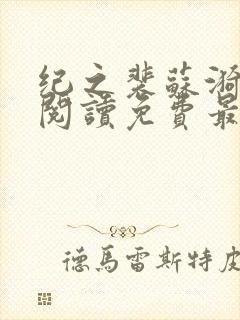 纪之裴蘇漪
閱讀免費最
德馬雷斯特皮